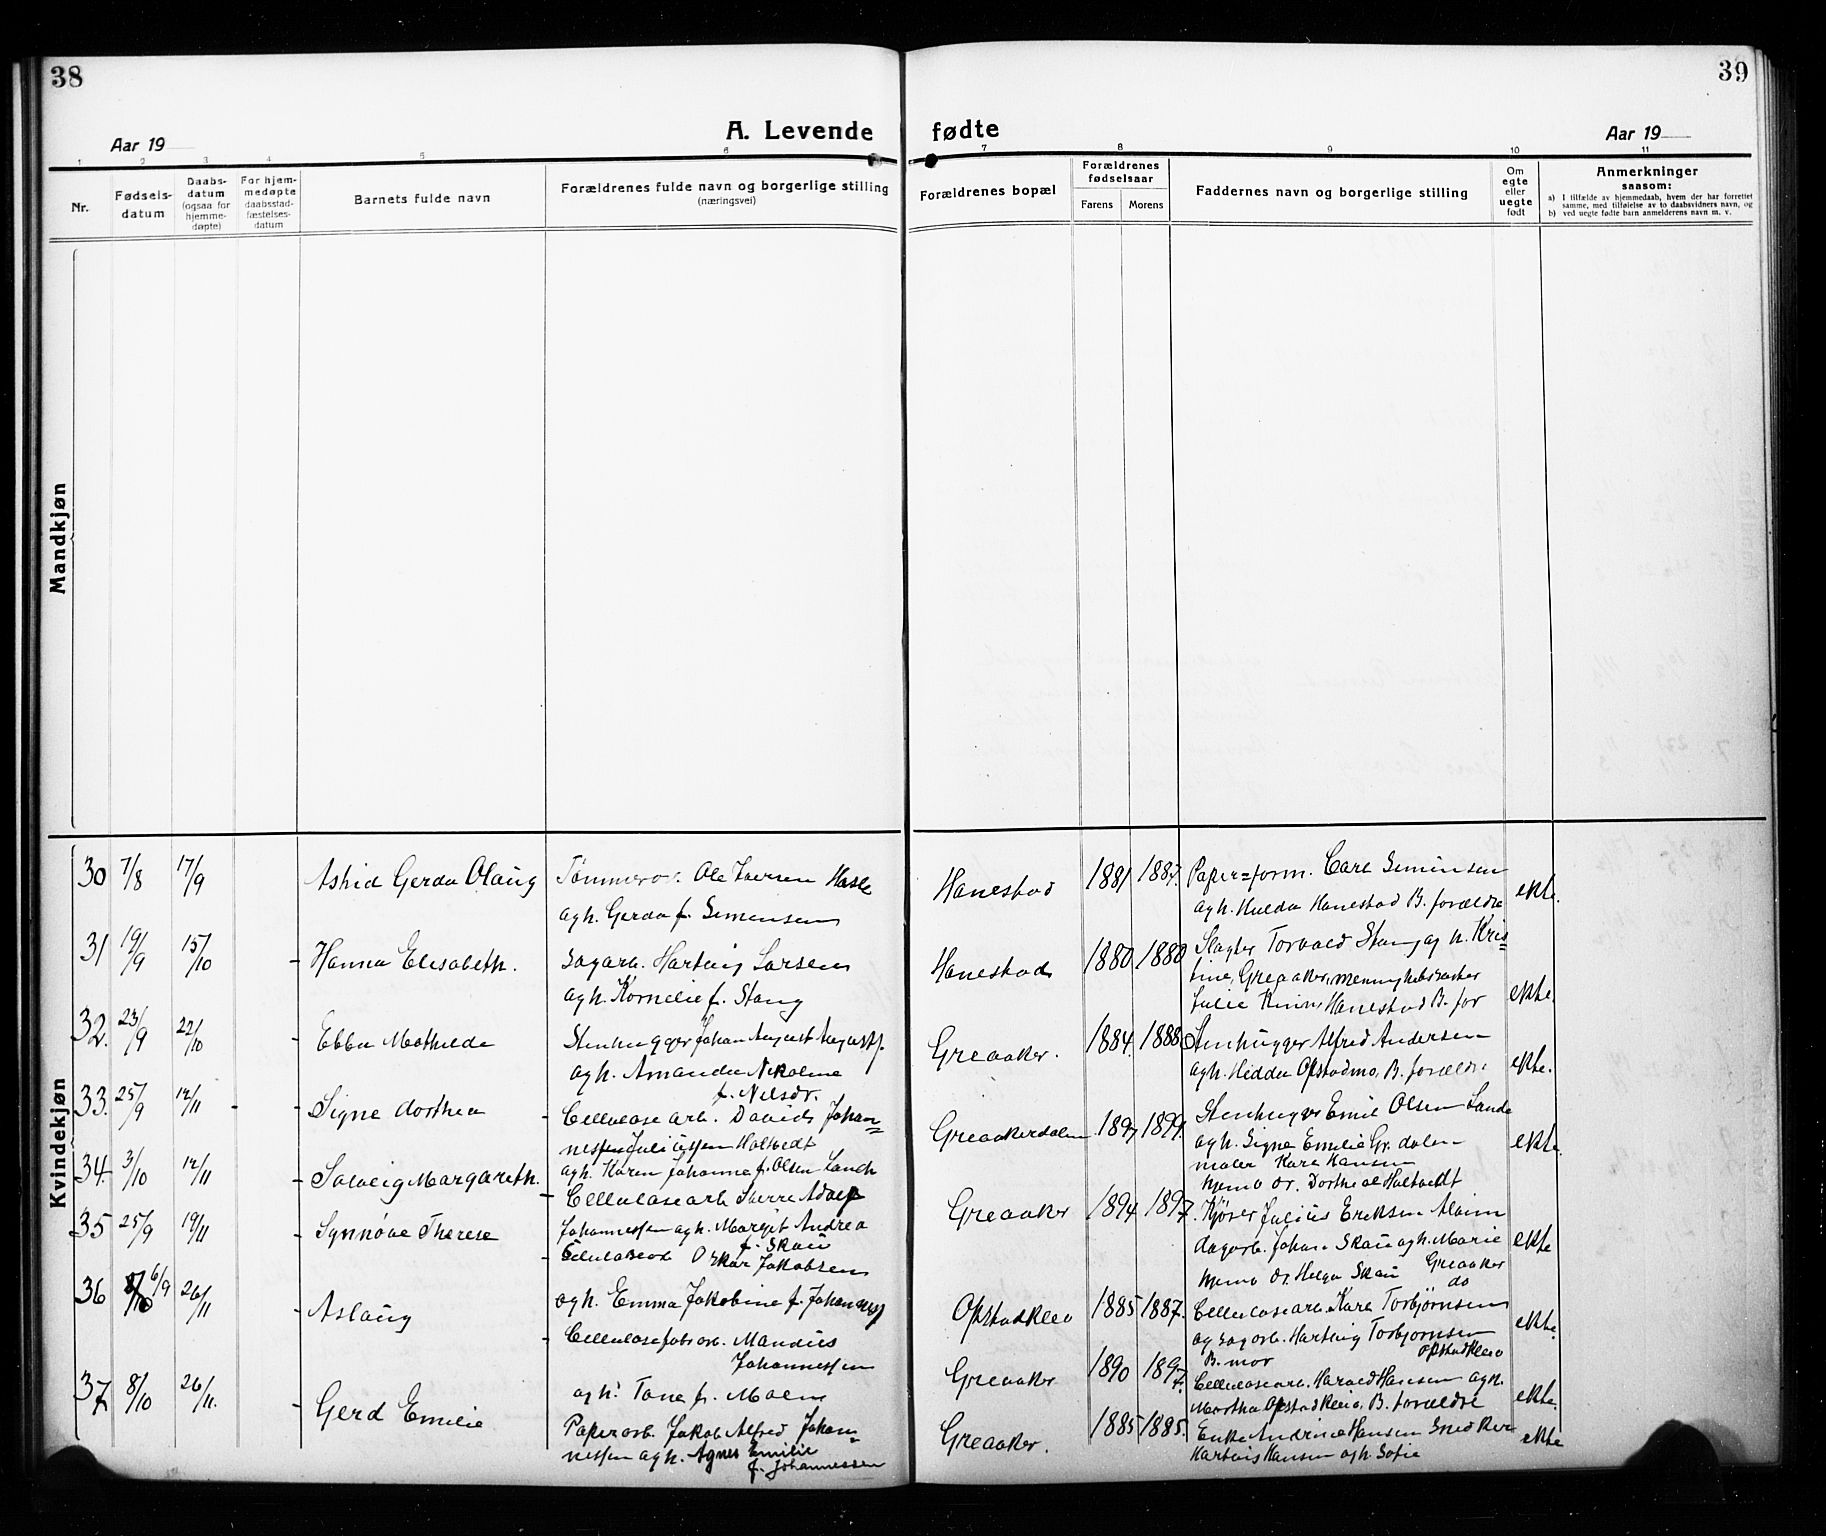 38
39
A. Levende fødte
Aar 19
Aar 19
1 2 3 4 5 6 7 8 9 10 11
Nr.
Fødselsdatum
Daabsdatum (ogsaa for hjemmedøpte)
For hjemmedøpte daabsstadfæstelsesdatum
Barnets fulde navn
Forældrenes fulde navn og borgerlige stilling
(næringsvei)
Forældrenes bopæl
Forældrenes fødselsaar
Farens Morens
Faddernes navn og borgerlige stilling
Om egte eller uegte født
Anmerkninger
saasom:
a) I tilfælde av hjemmedaab, hvem der har forrettet samme, med tilføielse av to daabsvidners navn, og
b) ved uegte fødte barn anmelderens navn m. v.
Mandkjøn
Kvindekjøn
30 7/8 17/9 Astrid Gerda Olaug
Ole Iversen Hasle
og h. Gerda f. Simensen
Hanestad 1881 1887.
Paper=form. Carl Simensen
og h. Hulda Hanestad B. forældre
ekte.
31 19/9 15/10 Hanna Elisabeth.
Sagarb. Hartvig Larsen
og h. Kornelie f. Stang
Hanestad 1880 1880
Slagter Torvald Stang og h. Kris=
tine, Greaaker, menighetssøster
Hanestad B. for
ekte.
32. 23/9 22/10 Ebba Mathilde
Stenhugger Johan August August
og h. Amanda Nikoline
f. Nilsdr.
Greaaker. 1884. 1888
Stenhugger Alfred Andersen
og h. Hilda Opstadmo, B. forældre
ekte.
33. 25/9 12/11 Signe Dorthea
Cellulosearb. David Johan=
nessen Holtvedt
og h. Karen Johanne f. Olsen Lande
Greaakerdalen 1897 1899.
Stenhugger Emil Olsen Lande
og h. Signe Emelie Gr. dalen
maler Kare Hansen
hjema dr. Dorthea Holtvedt
ekte.
34. 3/10 12/11 Solveig Margareth.
Cellulosearb Sverre Adolf
Johannessen og h. Margit Andrea
f. Skau
Greaaker 1894 1897.
Kjører Julius Eriksen Alvim
dagarb. Johan Skau og h. Marie
hjema dr. Helga Skau Greaaker
do
ekte
35 25/9 19/11 Synnøve Therese
Celulosearb Oskar Jakobsen
og h. Emma Jakobine f. Johanness
Opstadkleo 1885 1887.
Cellulosearb. Kare Torbjørnsen
og sagarb. Hartvig Torbjørnsen
B. mor
ekte.
36 6/9 26/11 Aslaug
Cellulosefabr arb. Mandius
Johannessen
og h. Tona f. Moen
Greaaker 1890 1897.
Cellulosearb. Harald Hansen og h.
Martha Opstadkleo, B. forældre
ekte.
37 8/10 26/11. Gerd Emilie
Paperarb. Jakob Alfred Johan=
nessen og h. Agnes Emilie
f. Johannessen
Greaaker. 1885 1885.
Enke Andrine Hansen Snedker
Hartvig Hansen og h. Sofie
ekte